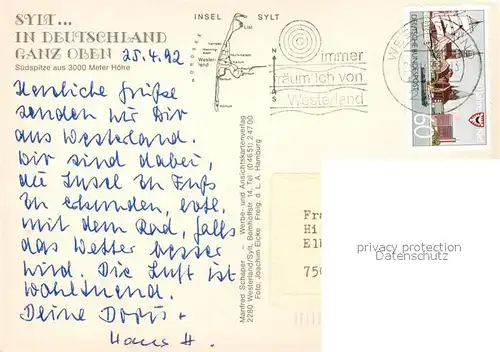 SYLT...
IN DEUTSCHLAND
GANZ OBEN
Südspitze aus 3000 Meter Höhe
25.4.92
Herzliche Grüße
senden wir Dir
aus Westerland.
Wir sind dabei,
die Insel zu Fuß
zu erkunden, evtl.
mit dem Rad, falls
das Wetter besser
wird. Die Luft ist
wohltuend.
Deine Doris +
Hans H.
INSEL SYLT
NORDSEE
List
Westerland
N
S
immer
träum' ich von
Westerland
DEUTSCHE BUNDESPOST
60
Manfred Schaper – Werbe- und Ansichtskartenverlag
2280 Westerland/Sylt, Bomhoffstr. 14, Tel. (0 46 51) 2 47 00
Foto: Joachim Eicke Freig. d. L. A. Hamburg
Fra
Hi
Elb
750
privacy protection
Datenschutz